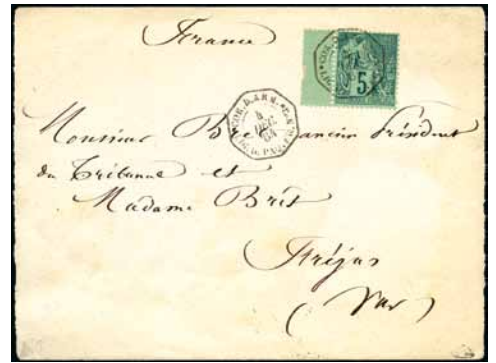 France
5
COR. D. ARM.
4
DEC
84
Monsieur Bret ancien Président
du Tribunal et
Madame Bret
Fréjus
(Var)